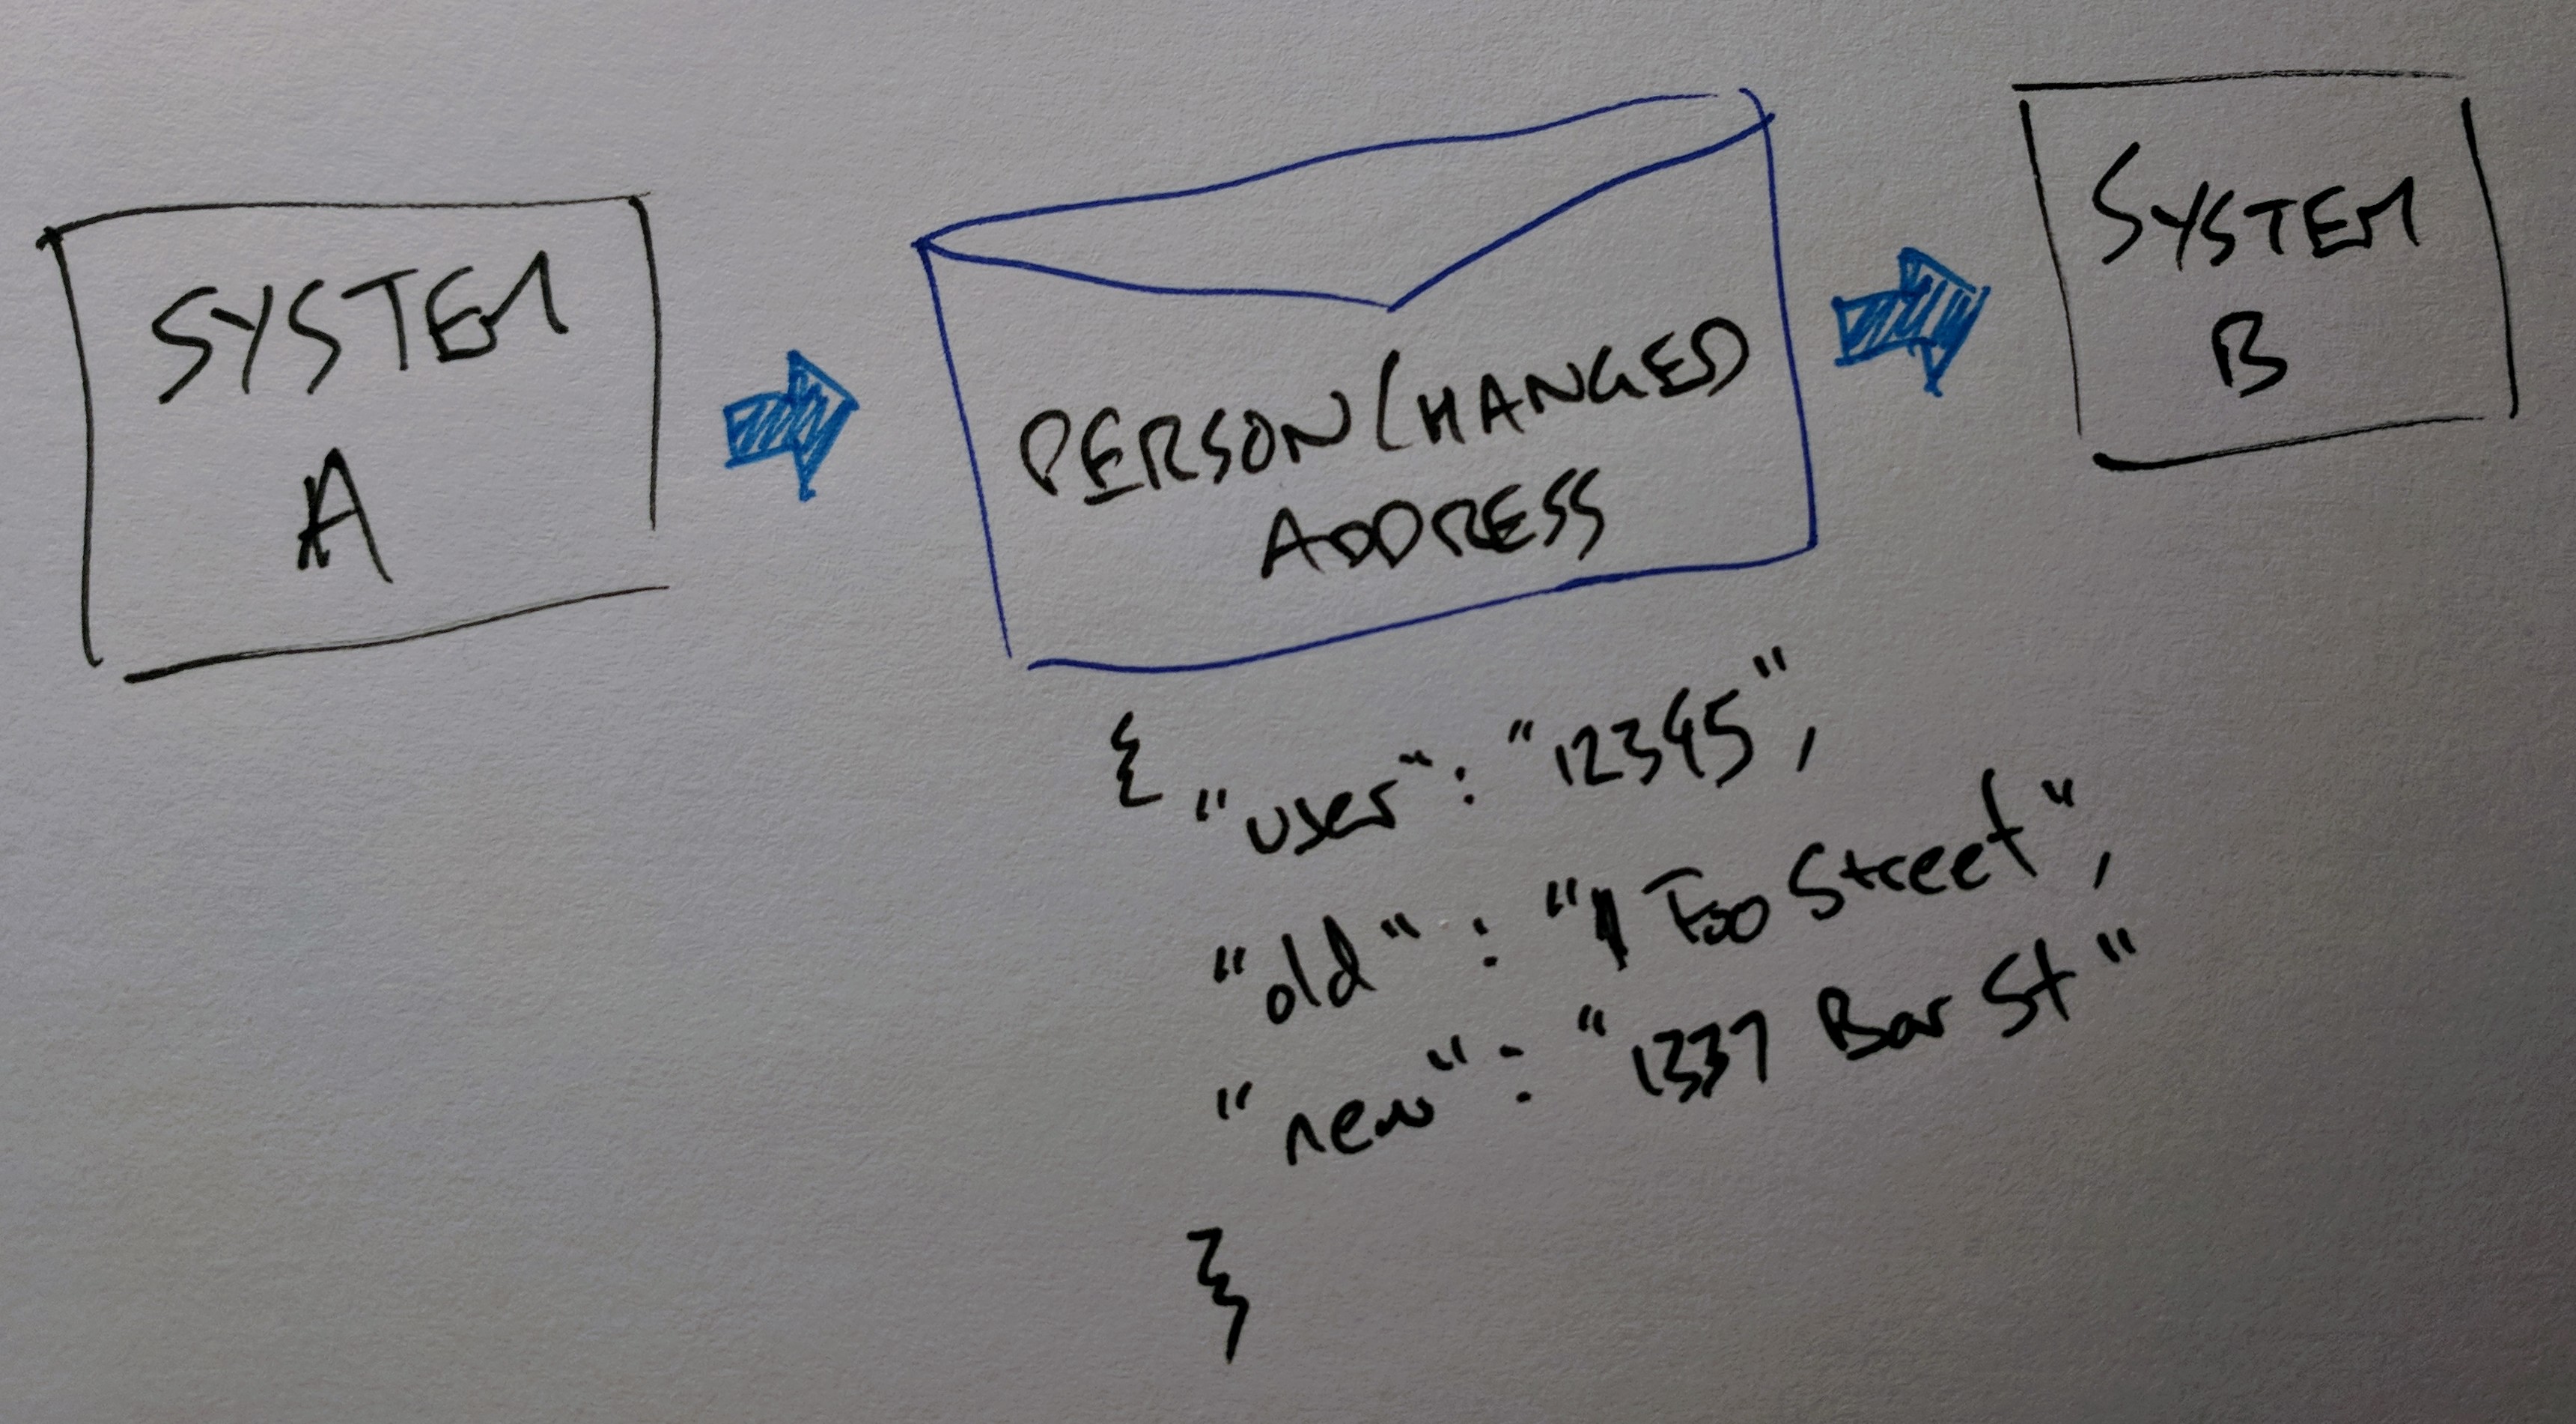 SYSTEM
A
PERSONCHANGED
ADDRESS
SYSTEM
B
{ "user": "12345",
"old": "1 Foo Street",
"new": "1337 Bar St"
}